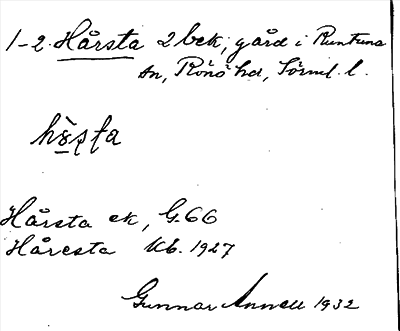 1-2. Hårsta 2 bek, gård i Runtuna
sn, Rönö hd, Sörml. l.
Hårsta ek, G.66
Håresta kb. 1927
Gunnar Annell 1932